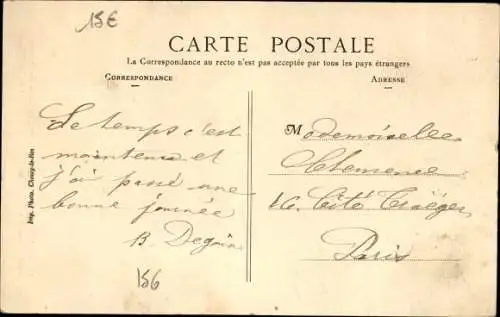 15€
CARTE POSTALE
La Correspondance au recto n'est pas acceptée par tous les pays étrangers
CORRESPONDANCE
ADRESSE
Le temps c'est
maintenu et
j'ai passé une
bonne journée
B Degoin
156
Mademoiselle
Clemence
16. Cité
Paris
Imp. Photo. Choisy-le-Roi